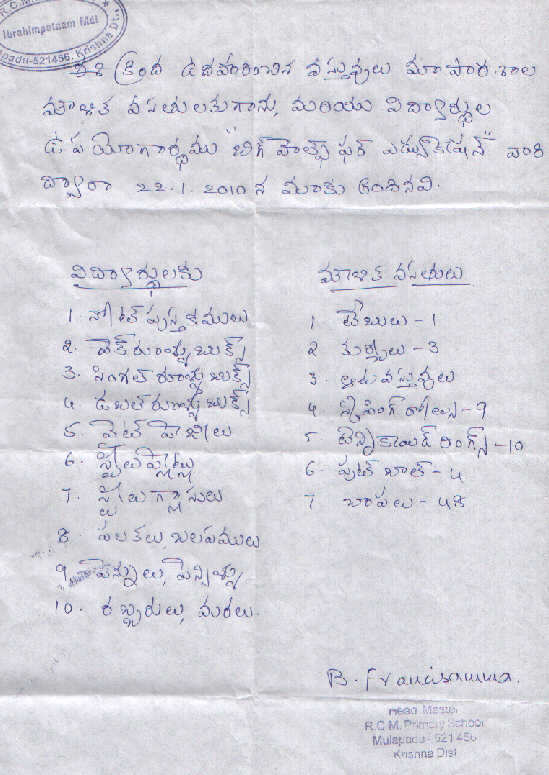 R.C.M.
Ibrahimpatnam Mdl
Mulapadu-521456, Krishna Dt.
ఈ క్రింద ఉదహరించిన వస్తువులు మా పాఠశాల
మౌళిక వసతులకుగాను, మరియు విద్యార్థుల
ఉపయోగార్థము "బిగ్ హెల్ప్ ఫర్ ఎడ్యుకేషన్" వారి
ద్వారా 22.1.2010 న మాకు అందినవి.
విద్యార్థులకు
1. నోట్ పుస్తకములు
2. వైట్ రూళ్ళుబుక్స్
3. సింగల్ రూళ్ళుబుక్స్
4. డబుల్ రూళ్ళుబుక్స్
5. వైట్ పేజీలు
6. స్టీలుప్లేట్లు
7. స్టీలుగ్లాసులు
8. పలకలు, బలపములు
9. పెన్నులు, పెన్సిళ్ళు
10. రబ్బరులు, మరలు.
మౌళిక వసతులు
1 టేబులు - 1
2 కుర్చీలు - 3
3. ఆటవస్తువులు
4 స్కిపింగ్ రోప్లు - 9
5 టెన్నికాయిట్ రింగ్స్ - 10
6. ఫుట్ బాల్ - 4
7 చాపలు - 48
B. Francisamma.
Head Master
R.C.M. Primary School
Mulapadu - 521 456
Krishna Dist